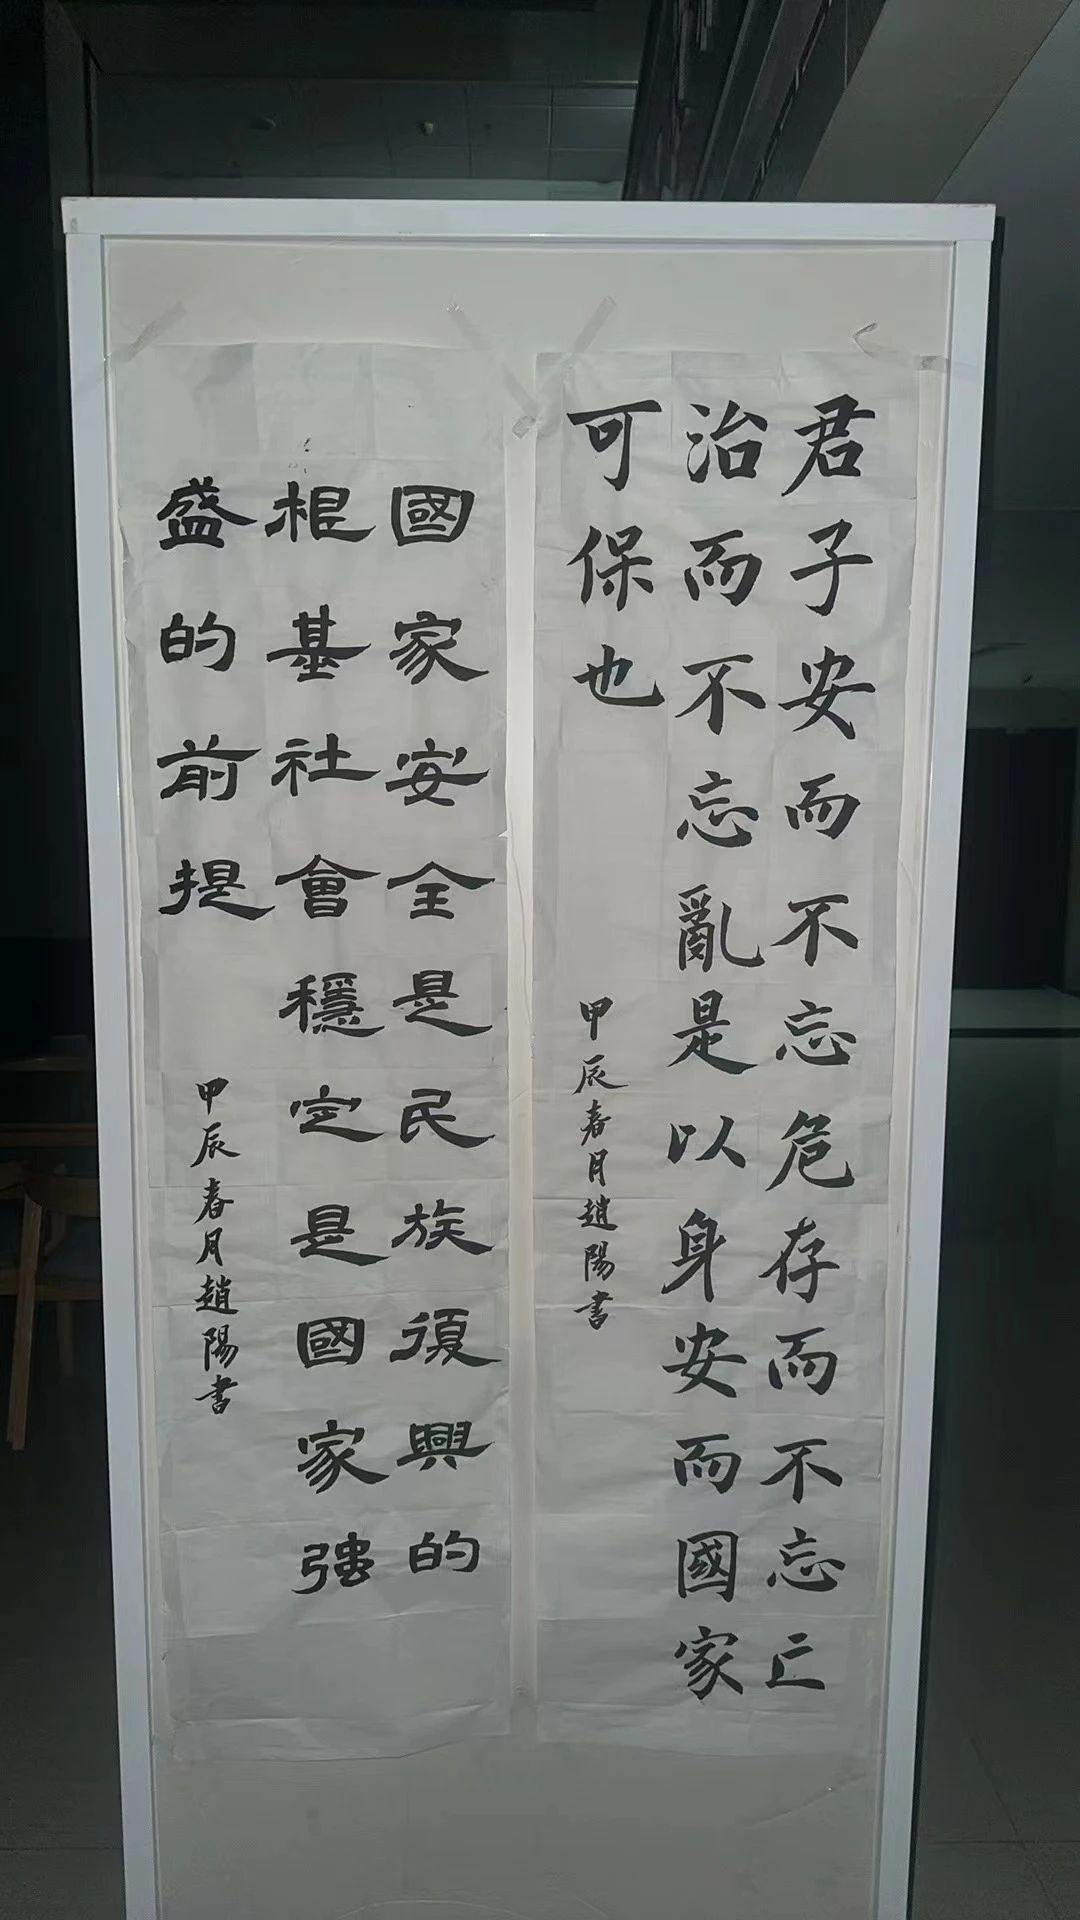 君子安而不忘危存而不忘亡
治而不忘亂是以身安而國家
可保也
甲辰春月趙陽書
國家安全是民族復興的
根基社會穩定是國家強
盛的前提
甲辰春月趙陽書